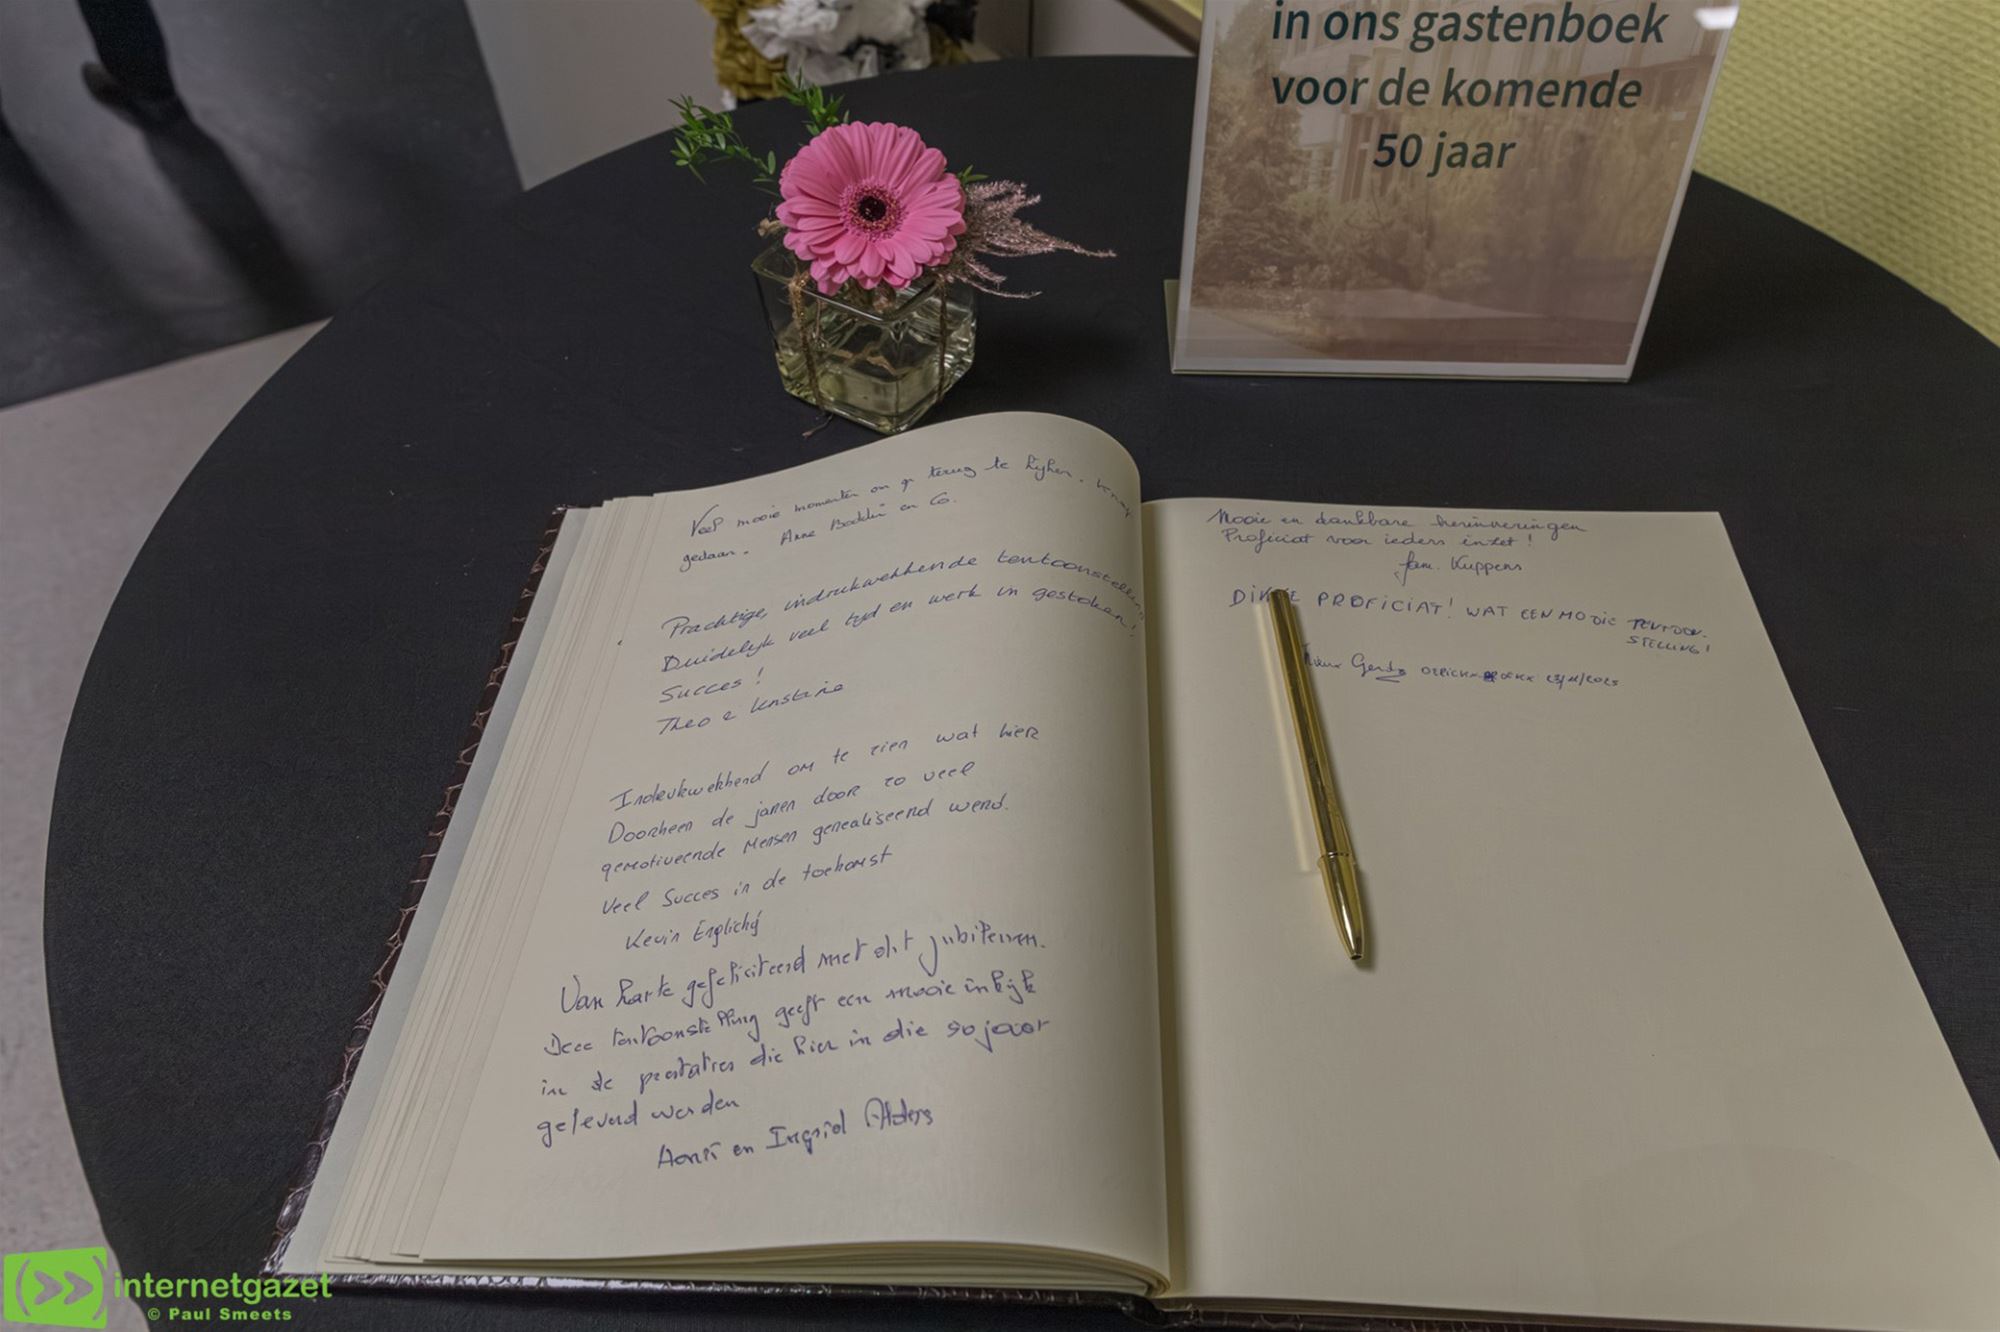 in ons gastenboek
voor de komende
50 jaar
Veel mooie momenten om op terug te kijken. knap
gedaan. Anne en Co.
Prachtige, indrukwekkende tentoonstelling
Duidelijk veel tijd en werk in gestoken!
Succes!
Theo
Indrukwekkend om te zien wat hier
Doorheen de jaren door zo veel
gemotiveerde mensen gerealiseerd werd.
Veel Succes in de toekomst
Kevin
Van harte gefeliciteerd met dit jubileum.
Deze tentoonstelling geeft een mooie inkijk
in de prestaties die hier in die 50 jaar
geleverd werden
en Ingrid
Mooie en dankbare herinneringen
Proficiat voor ieders inzet!
fam. Kuppens
PROFICIAT! WAT EEN MOOIE TENTOON-
STELLING!
internetgazet
© Paul Smeets